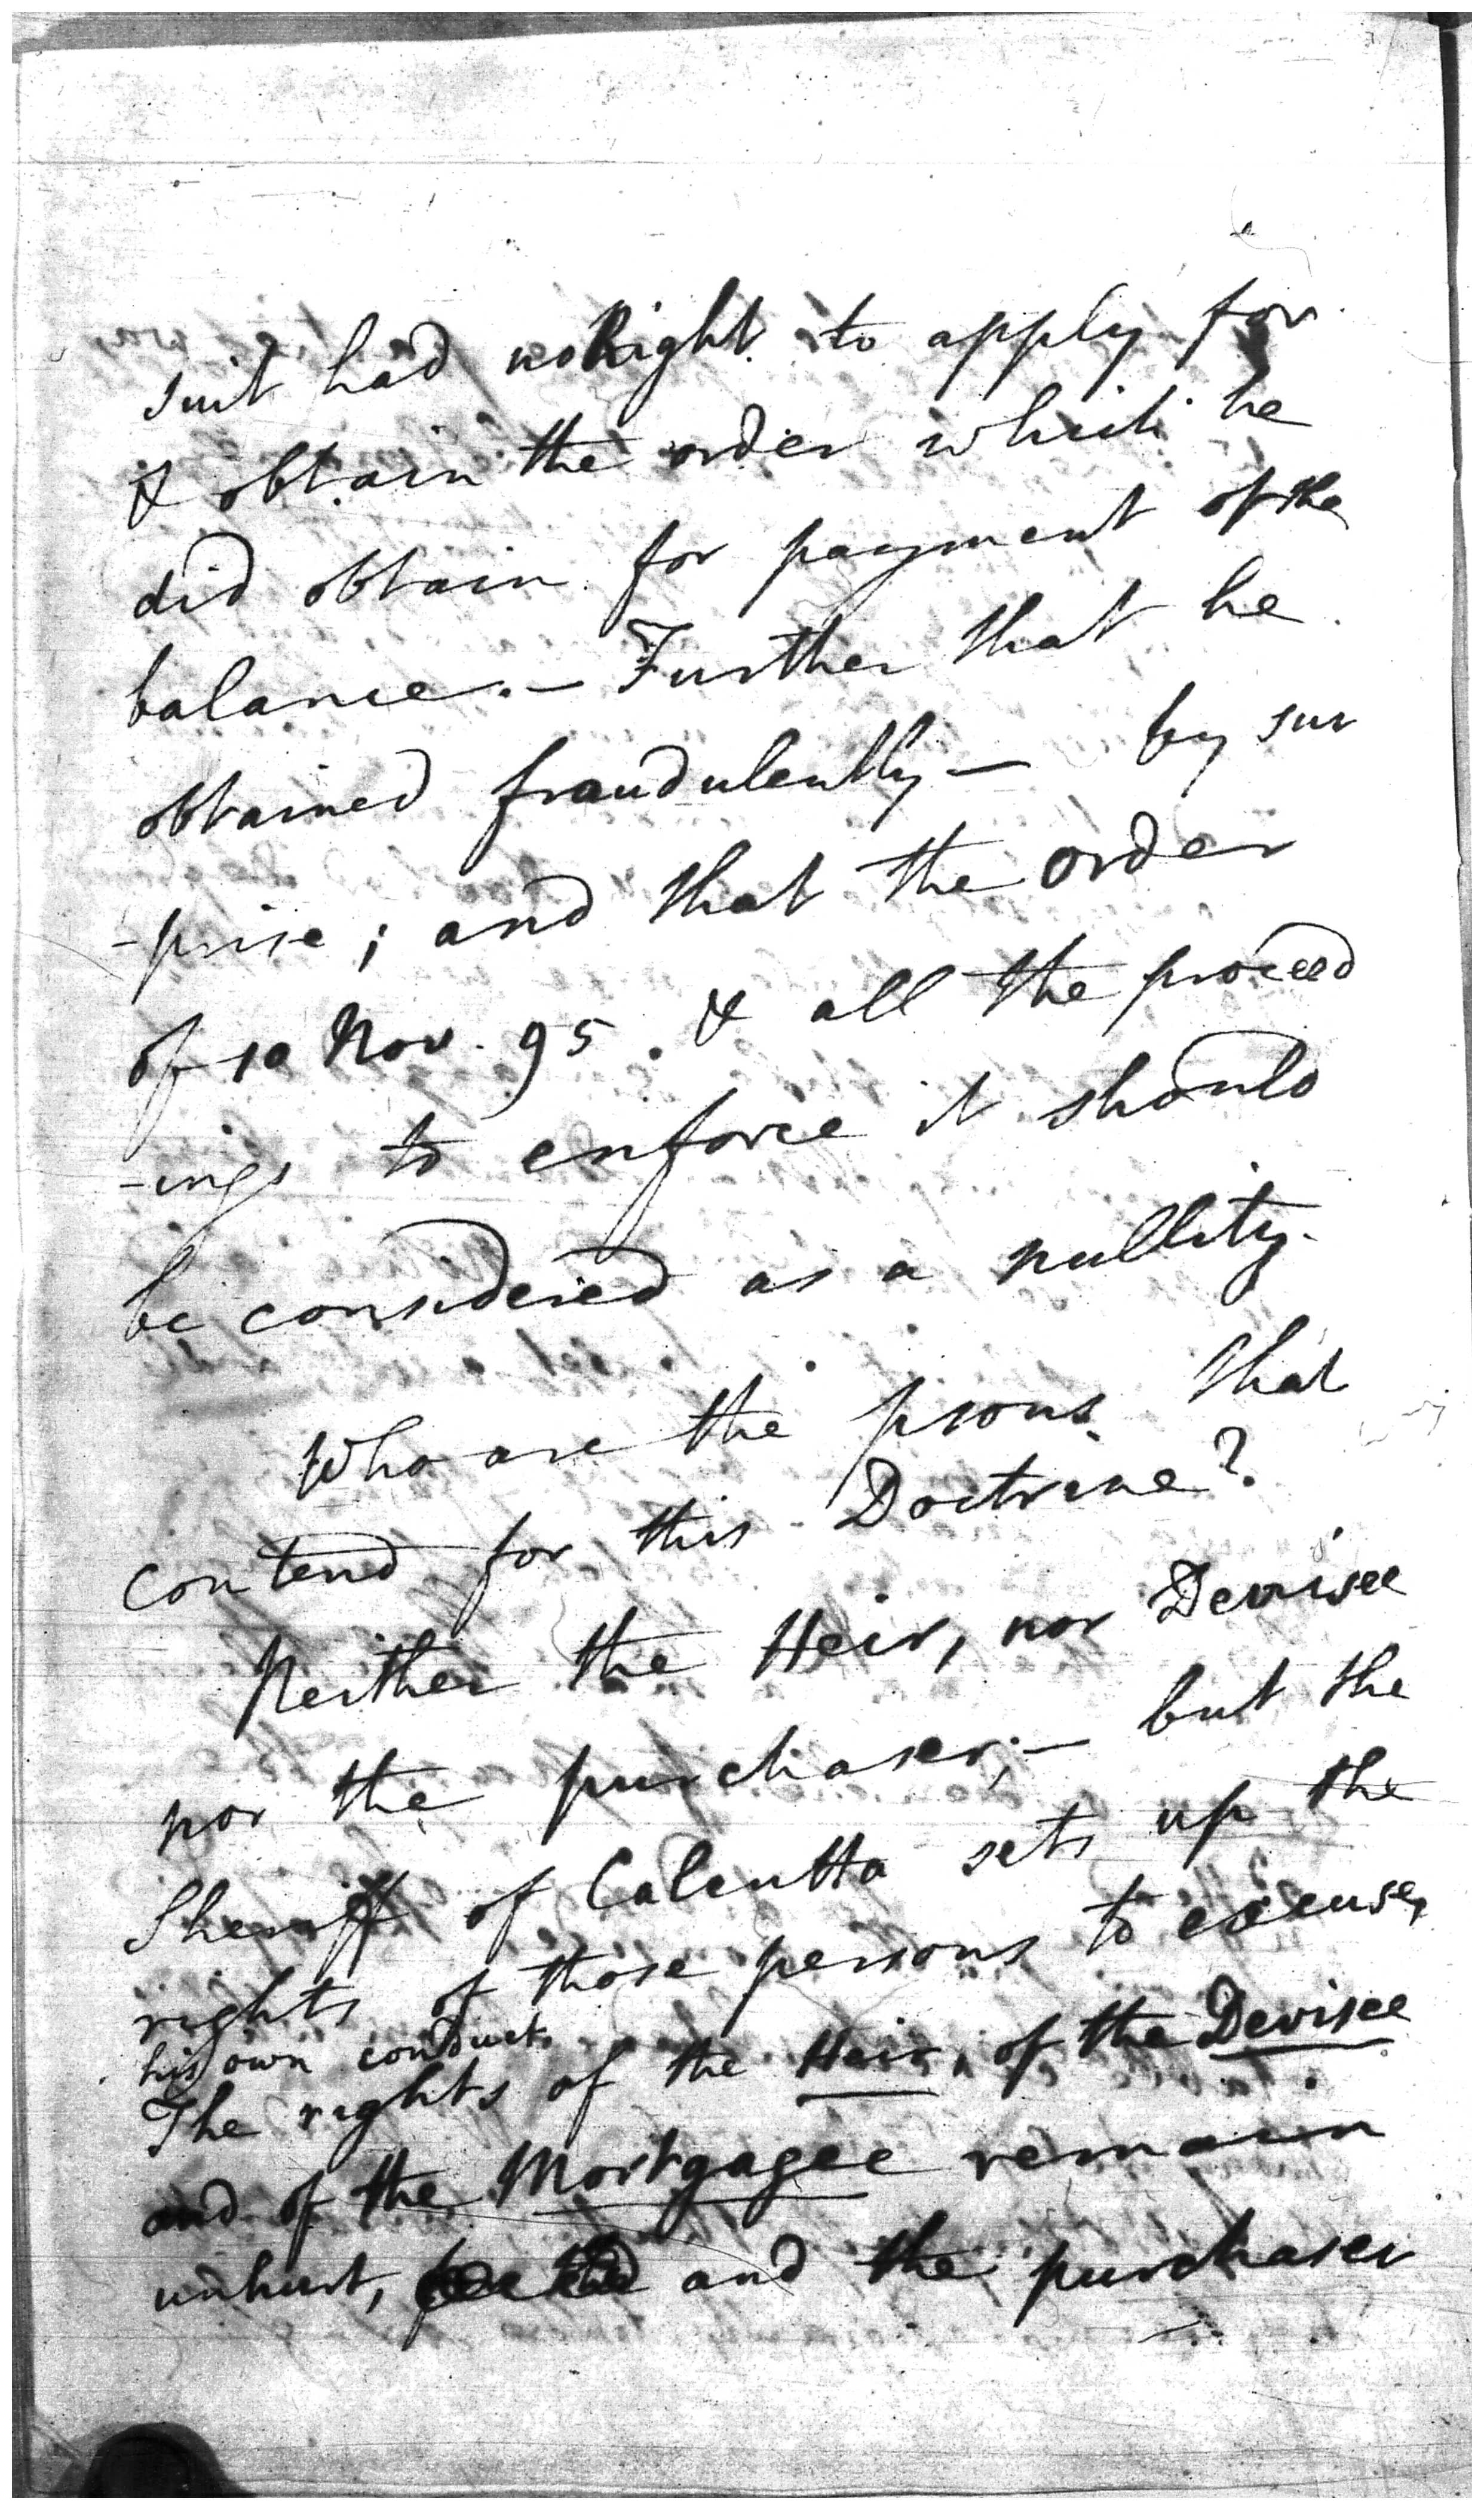 suit had no Right to apply for
& obtain the order which he
did obtain for payment of the
balance. — Further that he
obtained fraudulently — by sur
-prise; and that the order
of 10 Nov. 95. & all the proceed
-ings to enforce it should
be considered as a nullity.
Who are the psons that
contend for this Doctrine?
Neither the Heir, nor Devisee
nor the purchaser; — but the
Sheriff of Calcutta sets up the
rights of those persons to excuse,
his own conduct.
The rights of the Heir, of the Devisee
and of the Mortgagee remain
unhurt, and the purchaser